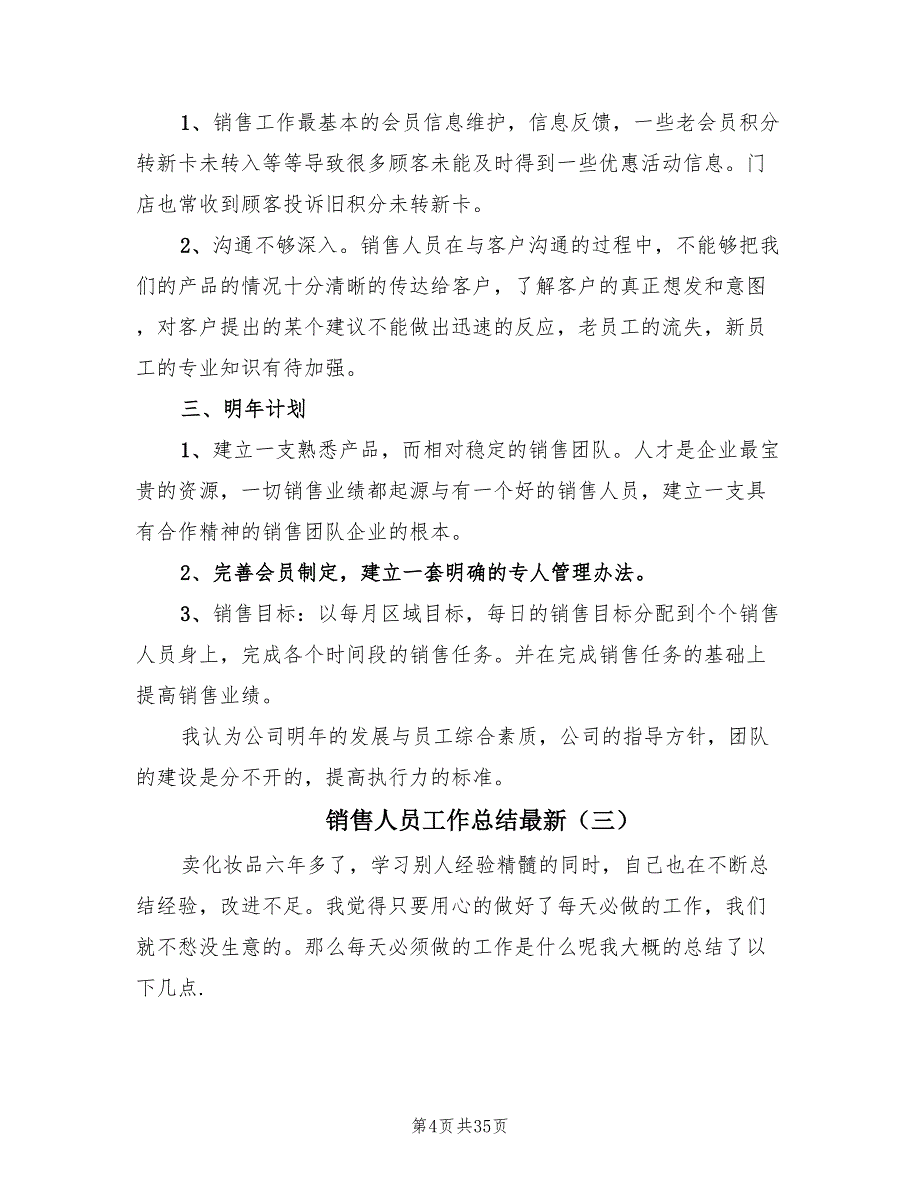 1、销售工作最基本的会员信息维护，信息反馈，一些老会员积分
转新卡未转入等等导致很多顾客未能及时得到一些优惠活动信息。门
店也常收到顾客投诉旧积分未转新卡。
2、沟通不够深入。销售人员在与客户沟通的过程中，不能够把我
们的产品的情况十分清晰的传达给客户，了解客户的真正想发和意图
，对客户提出的某个建议不能做出迅速的反应，老员工的流失，新员
工的专业知识有待加强。
三、明年计划
1、建立一支熟悉产品，而相对稳定的销售团队。人才是企业最宝
贵的资源，一切销售业绩都起源与有一个好的销售人员，建立一支具
有合作精神的销售团队企业的根本。
2、完善会员制定，建立一套明确的专人管理办法。
3、销售目标：以每月区域目标，每日的销售目标分配到个个销售
人员身上，完成各个时间段的销售任务。并在完成销售任务的基础上
提高销售业绩。
我认为公司明年的发展与员工综合素质，公司的指导方针，团队
的建设是分不开的，提高执行力的标准。
销售人员工作总结最新（三）
卖化妆品六年多了，学习别人经验精髓的同时，自己也在不断总
结经验，改进不足。我觉得只要用心的做好了每天必做的工作，我们
就不愁没生意的。那么每天必须做的工作是什么呢我大概的总结了以
下几点.
第4页共35页